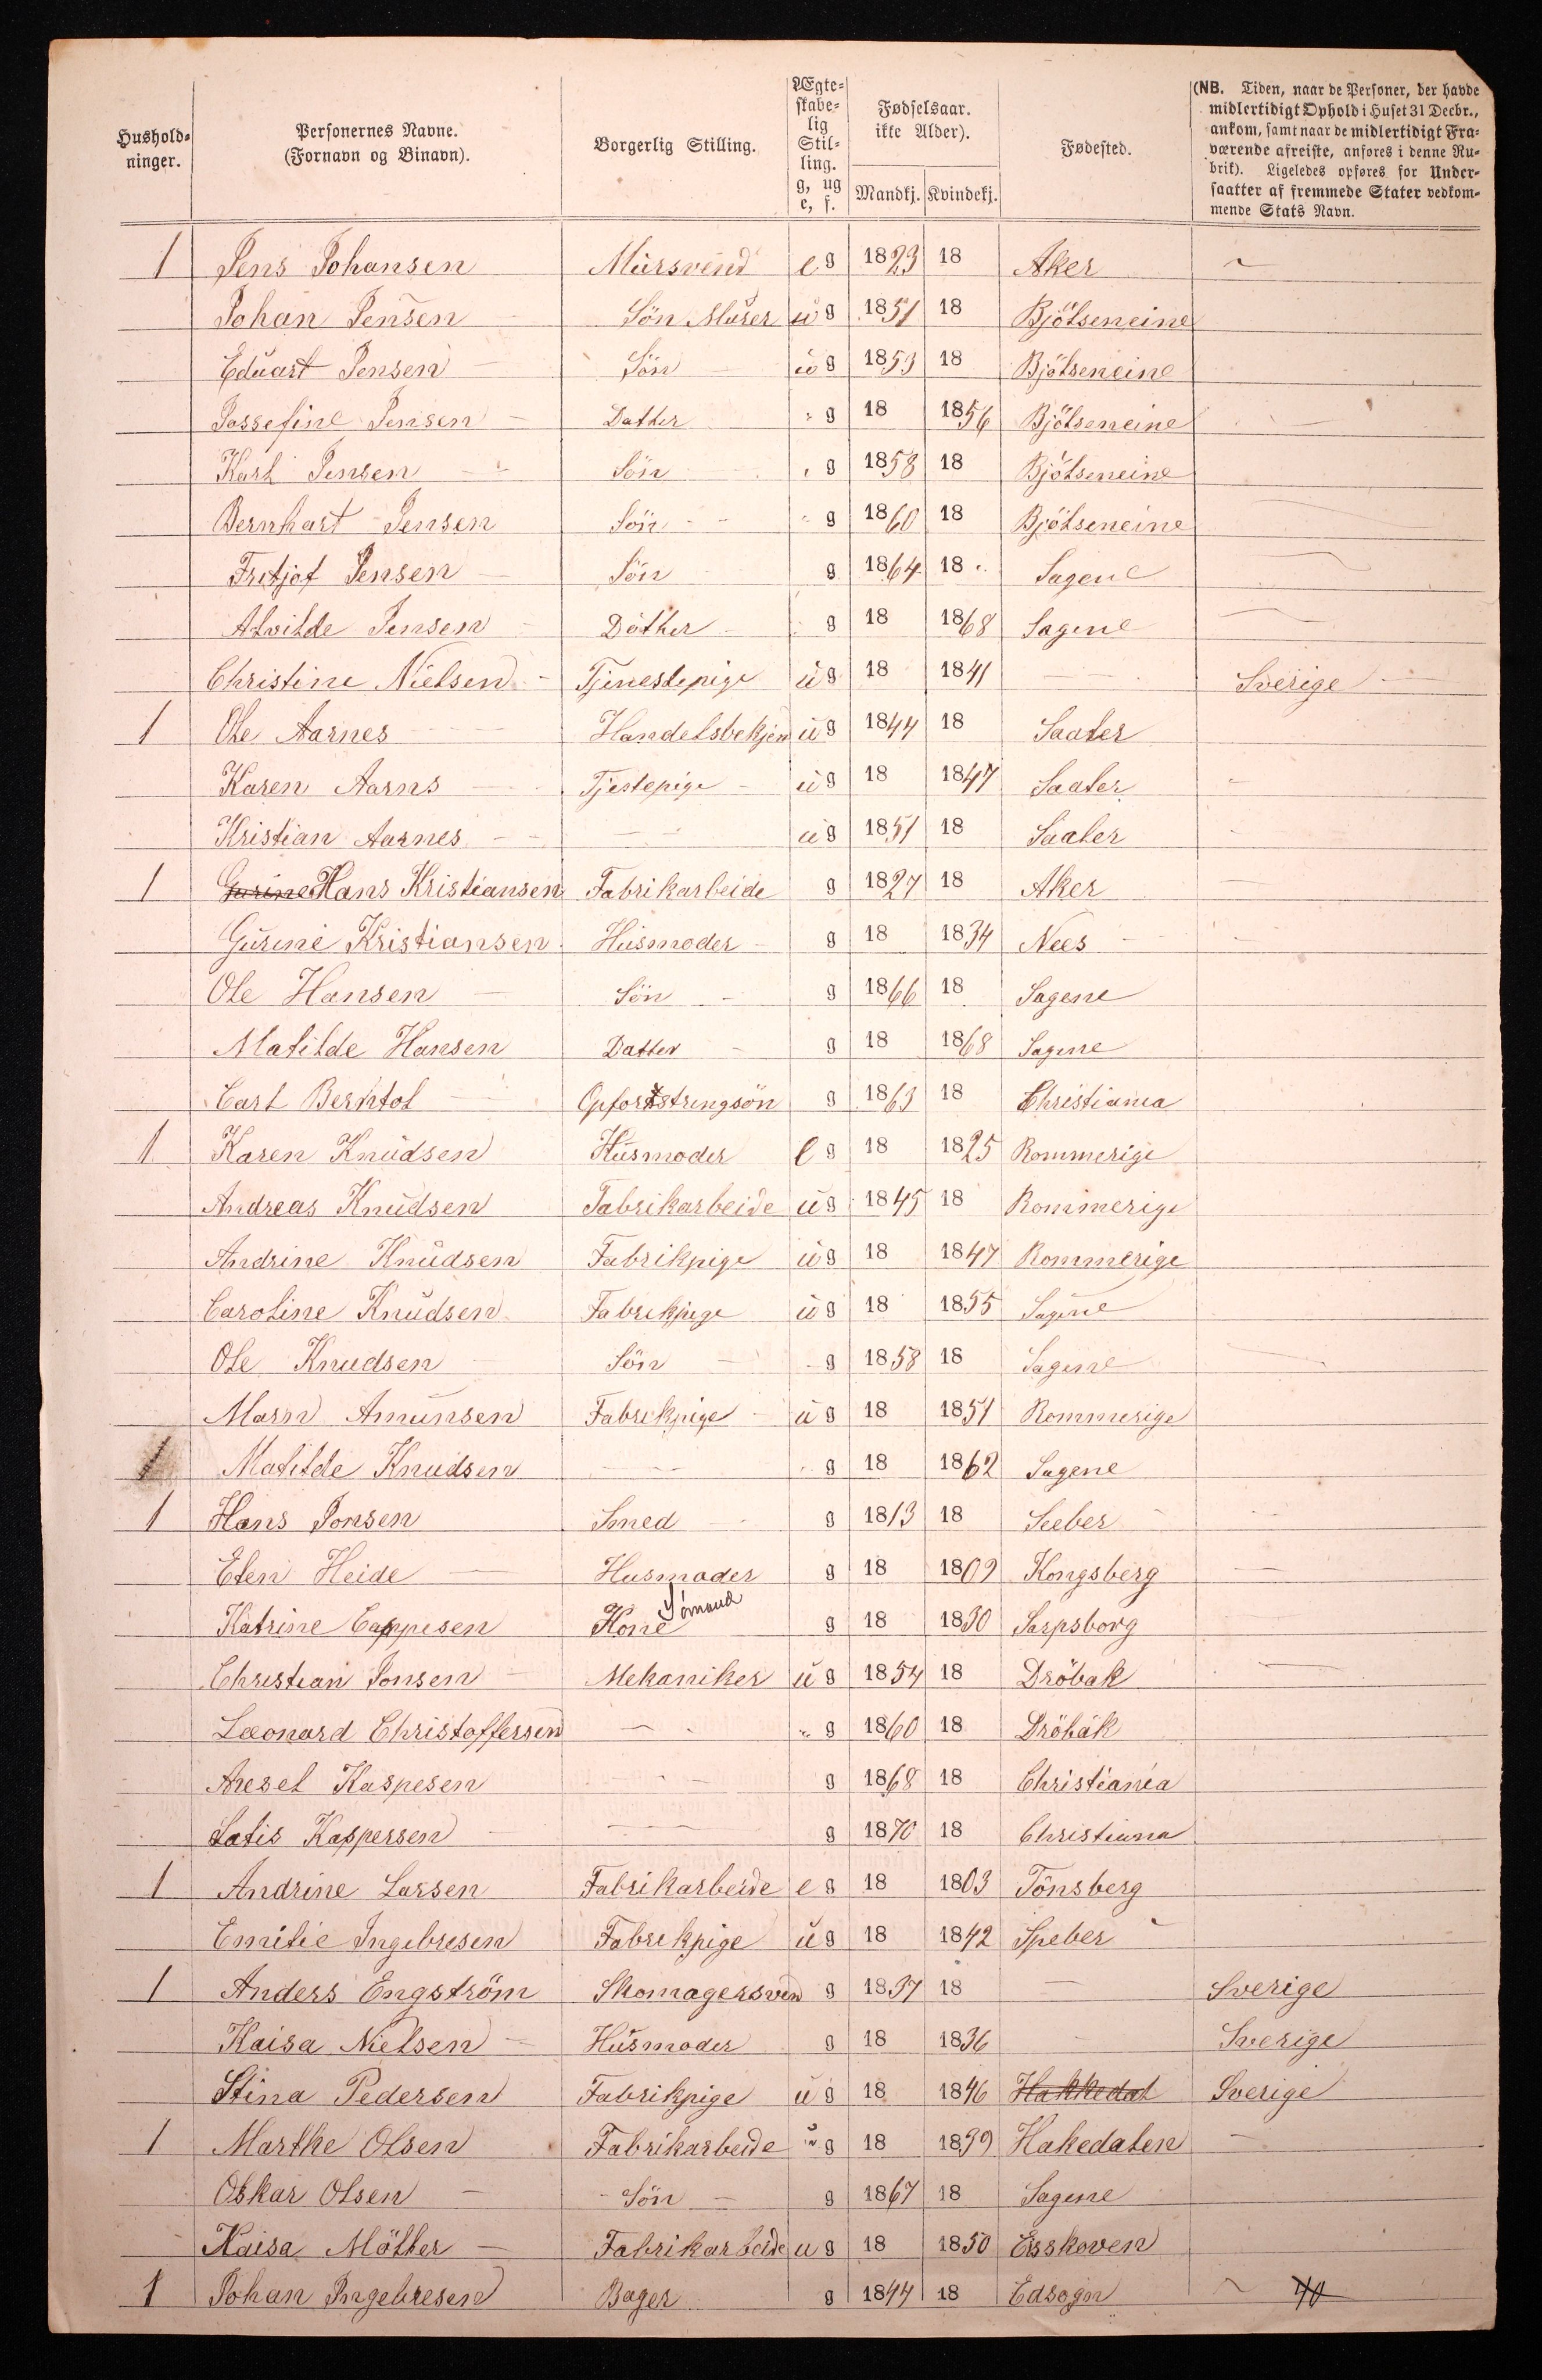 Hushold-
ninger.
Personernes Navne.
(Fornavn og Binavn).
Borgerlig Stilling.
Ægte-
skabe-
lig
Stil-
ling.
g, ug
e, f.
Fødselsaar.
ikke Alder).
Mandkj. Kvindekj.
Fødested.
(NB. Tiden, naar de Personer, der havde
midlertidigt Ophold i Huset 31 Decbr.,
ankom, samt naar de midlertidigt Fra-
værende afreiste, anføres i denne Ru-
brik). Ligeledes opføres for Under-
saatter af fremmede Stater vedkom-
mende Stats Navn.
1 Jens Johansen Mursvend e g 1823 18 Aker
Johan Jensen Sön Murer u g 1851 18 Bjölseneine
Eduart Jensen Sön u g 1853 18 Bjölseneine
Jossefine Jensen Datter g 18 1856 Bjölseneine
Karl Jensen Sön g 1858 18 Bjölseneine
Bernhart Jensen Sön g 1860 18 Bjölseneine
Fritjof Jensen Sön g 1864 18 Sagene
Alvilde Jensen Dötter g 18 1868 Sagene
Christine Nielsen Tjenestepige u g 18 1841 Sverige
1 Ole Aarnes Handelsbekjen u g 1844 18 Saaler
Karen Aarns Tjestepige u g 18 1847 Saaler
Kristian Aarnes u g 1851 18 Saaler
1 Gurine Hans Kristiansen Fabrikarbeide g 1827 18 Aker
Gurine Kristiansen Husmoder g 18 1834 Nees
Ole Hansen Sön g 1866 18 Sagene
Matilde Hansen Datter g 18 1868 Sagene
Carl Berntol g 1863 18 Christiania
1 Karen Knudsen Husmoder e g 18 1825 Rommerige
Andreas Knudsen Fabrikarbeide u g 1845 18 Rommerige
Andrine Knudsen Fabrikpige u g 18 1847 Rommerige
Caroline Knudsen Fabrikpige u g 18 1855 Sagene
Ole Knudsen Sön g 1858 18 Sagene
Marn Amunsen Fabrikpige u g 18 1851 Rommerige
Matilde Knudsen g 18 1862 Sagene
1 Hans Jonsen Smed g 1813 18 Seeber
Elen Heide Husmoder g 18 1809 Kongsberg
Katrine Cappesen Kone Sömand g 18 1830 Sarpsborg
Christian Jonsen Mekaniker u g 1854 18 Dröbak
Leonard Christoffersen g 1860 18 Dröbak
Axesel Kaspesen g 1868 18 Christiania
Latis Kaspersen g 1870 18 Christiana
1 Andrine Larsen Fabrikarbeide e g 18 1803 Tönsberg
Emilie Ingebresen Fabrikpige u g 18 1842 Speber
1 Anders Engström Skomagersven g 1837 18 Sverige
Kaisa Nielsen Husmoder g 18 1836 Sverige
Stina Pedersen Fabrikpige u g 18 1846 Hakkedal Sverige
1 Marthe Olsen Fabrikarbeide u g 18 1839 Hakedalen
Oskar Olsen Sön g 1867 18 Sagene
Kaisa Möller Fabrikarbeide u g 18 1850 Esskoven
1 Johan Ingebresen Bager g 1844 18 Edsogn 40